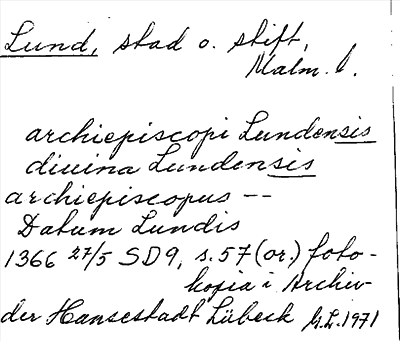 Lund, stad o. stift,
Malm. l.
archiepiscopi Lundensis
diuina Lundensis
archiepiscopus --
Datum Lundis
1366 27/5 SD9, s.57 (or.) foto-
kopia i Archiv
der Hansestadt Lübeck G.L. 1971